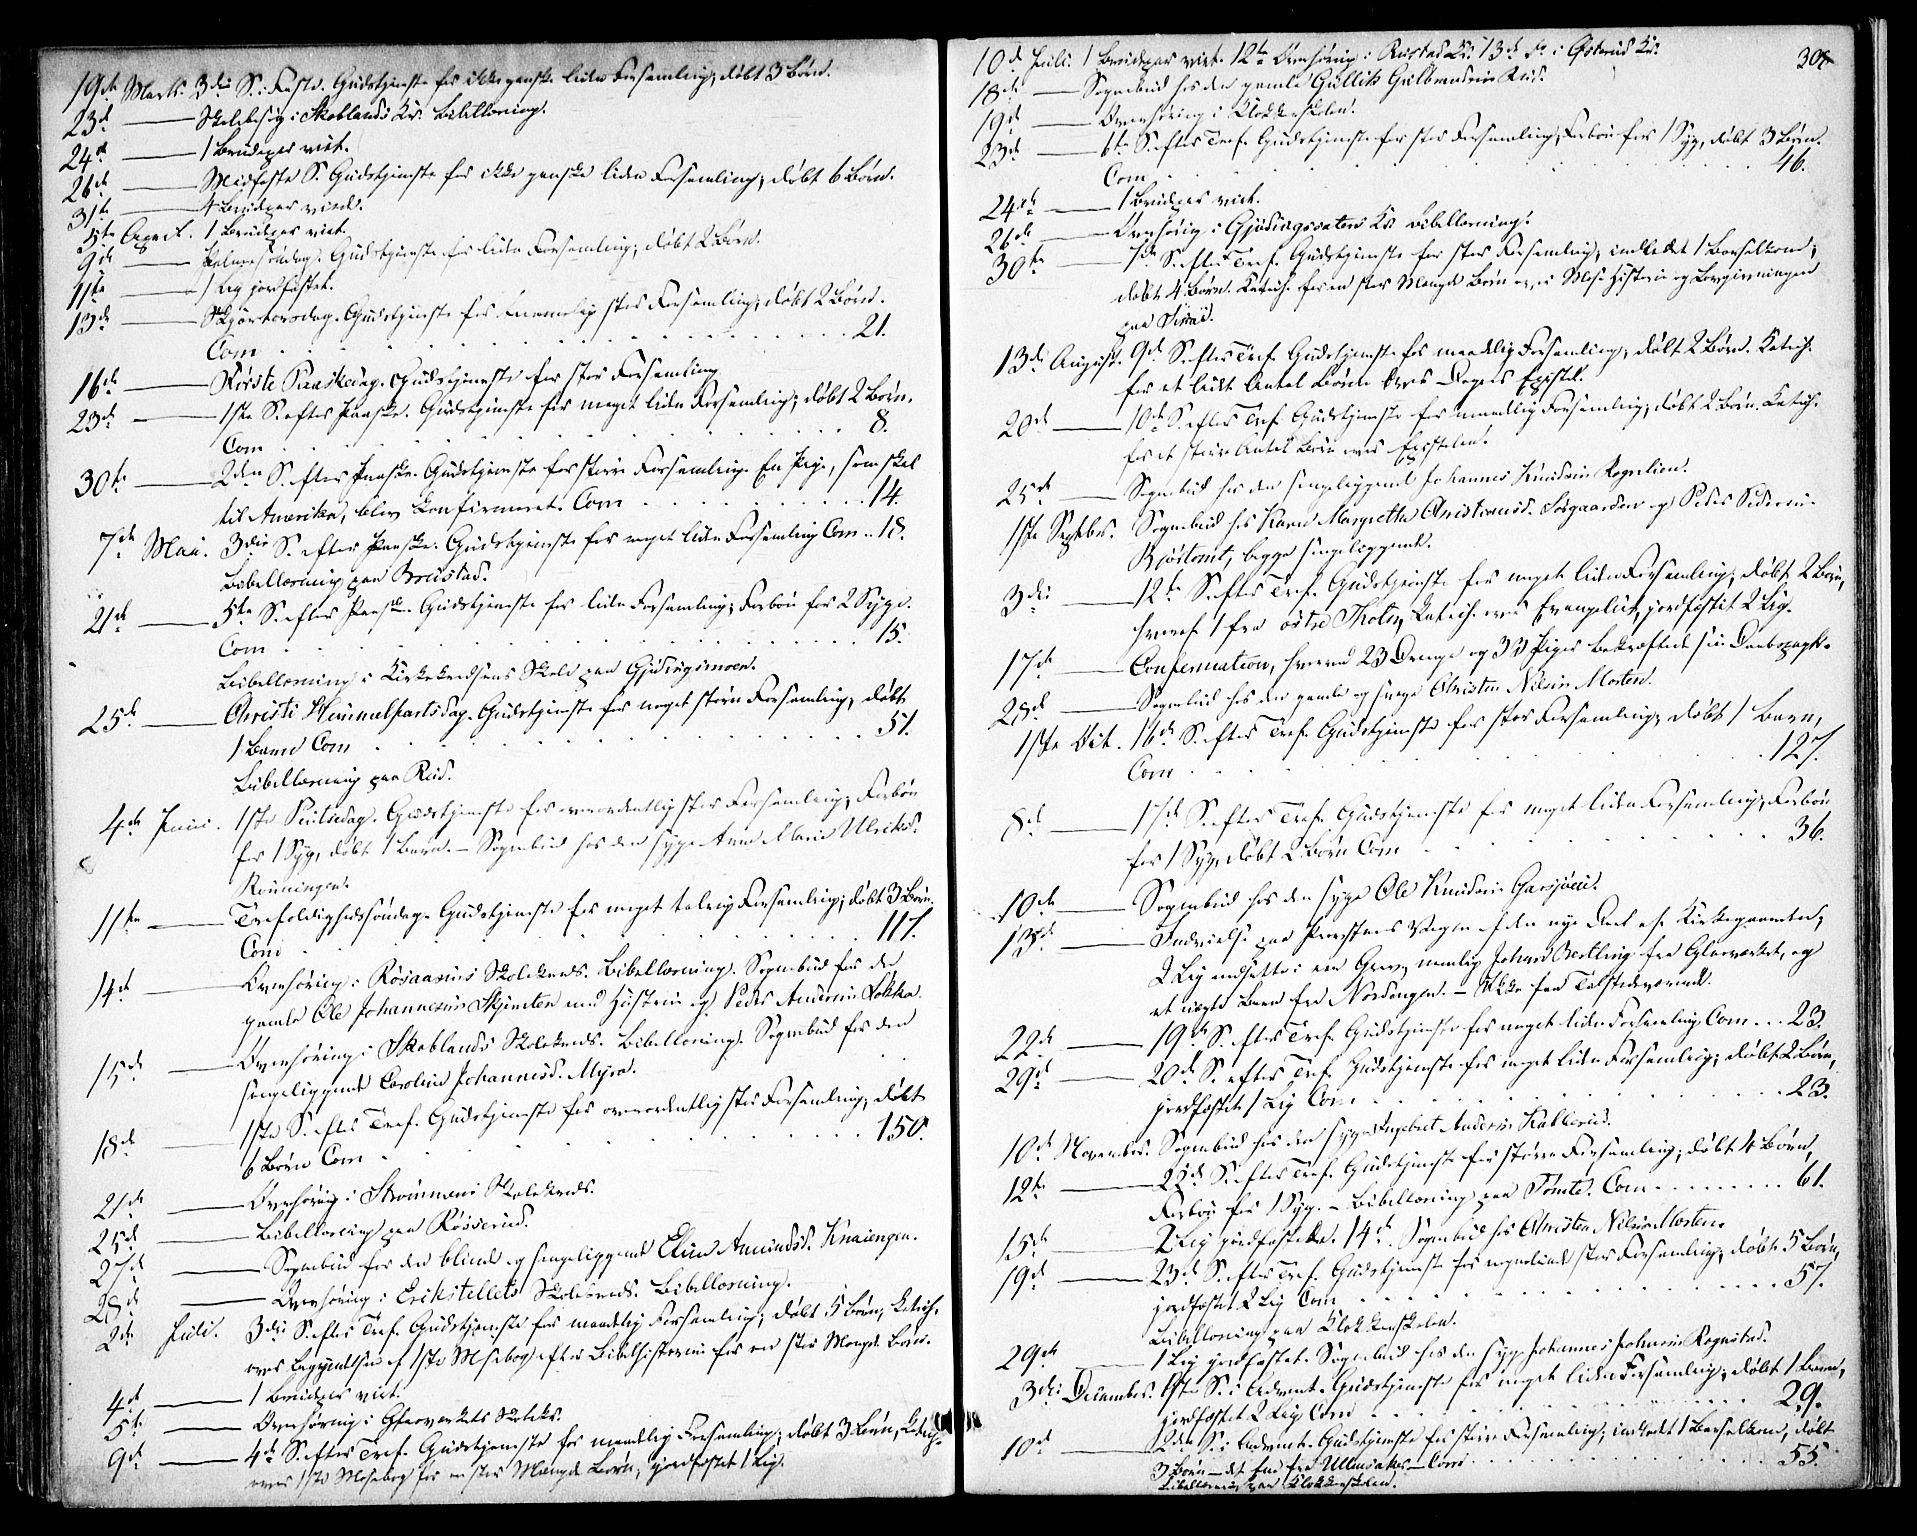 19de Marts. 3die S. i Faste. Gudstjeneste for ikke ganske liden Forsamling; døbt 3 Børn.
23de — Skolebesøg i Skoblands Kr. Bibellæsning.
24de — 1 Brudepar viet.
26de — Midfaste S. Gudstjeneste for ikke ganske liden Forsamling; døbt 6 Børn.
31te — 4 Brudepar viede.
5te April. 1 Brudepar viet.
9de — Palmesøndag. Gudstjeneste for liden Forsamling; døbt 2 Børn.
11te — 1 Lig jordfæstet.
13de — Skjærtorsdag. Gudstjeneste for temmelig stor Forsamling; døbt 2 Børn.
Com . . . 21.
16de — Første Paaskedag. Gudstjeneste for stor Forsamling.
23de — 1ste S. efter Paaske. Gudstjeneste for meget liden Forsamling; døbt 2 Børn.
Com . . . 8.
30te — 2den S. efter Paaske. Gudstjeneste for større Forsamling. En Pige, som skal
til Amerika, blev konfirmeret. Com . . . 14.
7de Mai. 3die S. efter Paaske. Gudstjeneste for meget liden Forsamling Com .. 18.
Bibellæsning paa Brustad.
21de — 5te S. efter Paaske. Gudstjeneste for liden Forsamling; Forbøn for 2 Syge.
Com . . . 15.
Bibellæsning i Kirkekredsens Skole paa Gjødingmoen.
25de — Christi Himmelfartsdag. Gudstjeneste for noget større Forsamling, døbt
1 Barn Com . . . 51.
Bibellæsning paa Rud.
4de Juni. 1ste Pintsedag. Gudstjeneste for overordentlig stor Forsamling; Forbøn
for 1 Syg, døbt 1 Barn. – Sognebud hos den syge Anne Marie Ulriksd.
Rønningen.
11te — Trefoldighedssøndag. Gudstjeneste for meget talrig Forsamling; døbt 3 Børn.
Com . . . 117.
14de — Overhøring i Røsaasens Skolekreds. Bibellæsning. Sognebud for den
gamle Ole Johannesen Skjenten med Hustru og Peder Andersen Løkka.
15de — Overhøring i Skoblands Skolekreds. Bibellæsning. Sognebud for den
sengeliggende Caroline Johannesd. Myra.
18de — 1ste S. efter Tref. Gudstjeneste for overordentlig stor Forsamling, døbt
6 Børn Com . . . 150.
21de — Overhøring i Strømmens Skolekreds.
25de — Bibellæsning paa Røsserud.
27de — Sognebud for den blinde og sengeliggende Eline Amundsd. Knaiengen.
28de — Overhøring i Erikstellets Skolekreds. Bibellæsning.
2den Juli. 3die S. efter Tref. Gudstjeneste for maadelig Forsamling; døbt 5 Børn, Katech.
over Begyndelsen af 1ste Mosebog efter Bibelhistorien for en stor Mængde Børn.
4de — 1 Brudepar viet.
5te — Overhøring i Glasværkets Skolekr.
9de — 4de S. efter Tref. Gudstjeneste for maadelig Forsamling; døbt 3 Børn, Katech.
over 1ste Mosebog for en stor Mængde Børn, jordfæstet 1 Lig.
308
10de Juli. 1 Brudepar viet. 12te Overhøring i Rustad Kr. 13de Do i Østerud Kr.
18de — Sognebud hos den gamle Gullik Gulbrandsen Rud.
19de — Overhøring i Klokkerskolen.
23de — 6te S. efter Tref. Gudstjeneste for stor Forsamling, Forbøn for 1 Syg, døbt 3 Børn.
Com . . . 46.
24de — 1 Brudepar viet.
26de — Overhøring i Gjødingsaatens Kr. Bibellæsning.
30te — 7de S. efter Tref. Gudstjeneste for stor Forsamling, indledet 1 Barselkone,
døbt 4 Børn. Katech. for en stor Mængde Børn over Mose Historie og Lovgivningen
paa Sinai.
13de August. 9de S. efter Tref. Gudstjeneste for maadelig Forsamling, døbt 2 Børn. Katech.
for et lidet Antal Børn over Dagens Epistel.
20de — 10de S. efter Tref Gudstjeneste for maadelig Forsamling; døbt 2 Børn. Katech.
for et større Antal Børn over Epistelen.
25de — Sognebud hos den sengeliggende Johannes Knudsen Rognlien.
1ste Septbr. Sognebud hos Karen Margrethe Christiansd. Torgaarden og Peder Pedersen
Bjørtomt, begge sengeliggende.
3die — 12te S. efter Tref. Gudstjeneste for meget liden Forsamling; døbt 2 Børn,
hvoraf 1 fra østre Thoten, Katech. over Evangeliet, jordfæstet 2 Lig.
17de — Confirmation, hvorved 23 Drenge og 33 Piger bekræftede sin Daabspagt.
28de — Sognebud hos den gamle og svage Christen Nilsen Morten.
1ste Oct. 16de S. efter Tref. Gudstjeneste for stor Forsamling; døbt 1 Barn,
Com . . . 127.
8de — 17de S. efter Tref. Gudstjeneste for meget liden Forsamling; Forbøn
for 1 Syg, døbt 2 Børn Com . . . 36.
10de — Sognebud hos den syge Ole Knudsen Garsjøen.
13de — Indvielse paa Provstens Vegne af den nye Deel af Kirkegaarden,
2 Lig nedsatte i een Grav, nemlig Johan Bertling fra Glasværket, og
et uægte Barn fra Nordengen. –
22de — 19de S. efter Tref. Gudstjeneste for meget liden Forsamling Com . . . 23.
29de — 20de S. efter Tref. Gudstjeneste for meget liden Forsamling; døbt 2 Børn,
jordfæstet 1 Lig Com . . . 23.
10de November. Sognebud hos den syge Ingebret Andersen Kallerud.
12te — 22de S. efter Tref. Gudstjeneste for større Forsamling; døbt 4 Børn,
Forbøn for 1 Syg. – Bibellæsning paa Tømte. Com . . . 61.
15de — 2 Lig jordfæstede. 14de Sognebud hos Christen Nilsen Morten.
19de — 23de S. efter Tref. Gudstjeneste for nogenlunde stor Forsamling; døbt 5 Børn,
jordfæstet 2 Lig Com . . . 57.
Bibellæsning paa Klokkerskolen.
29de — 1 Lig jordfæstet. Sognebud hos den syge Johannes Johnsen Rognstad.
3die December. 1ste S. i Advent. Gudstjeneste for meget liden Forsamling; døbt 1 Barn,
jordfæstet 2 Lig Com . . . 29.
10de — 2den S. i Advent. Gudstjeneste for større Forsamling; indledet 1 Barselkone, døbt
3 Børn – det ene fra Ullensaker – Com . . . 55.
Bibellæsning paa Klokkerskolen.